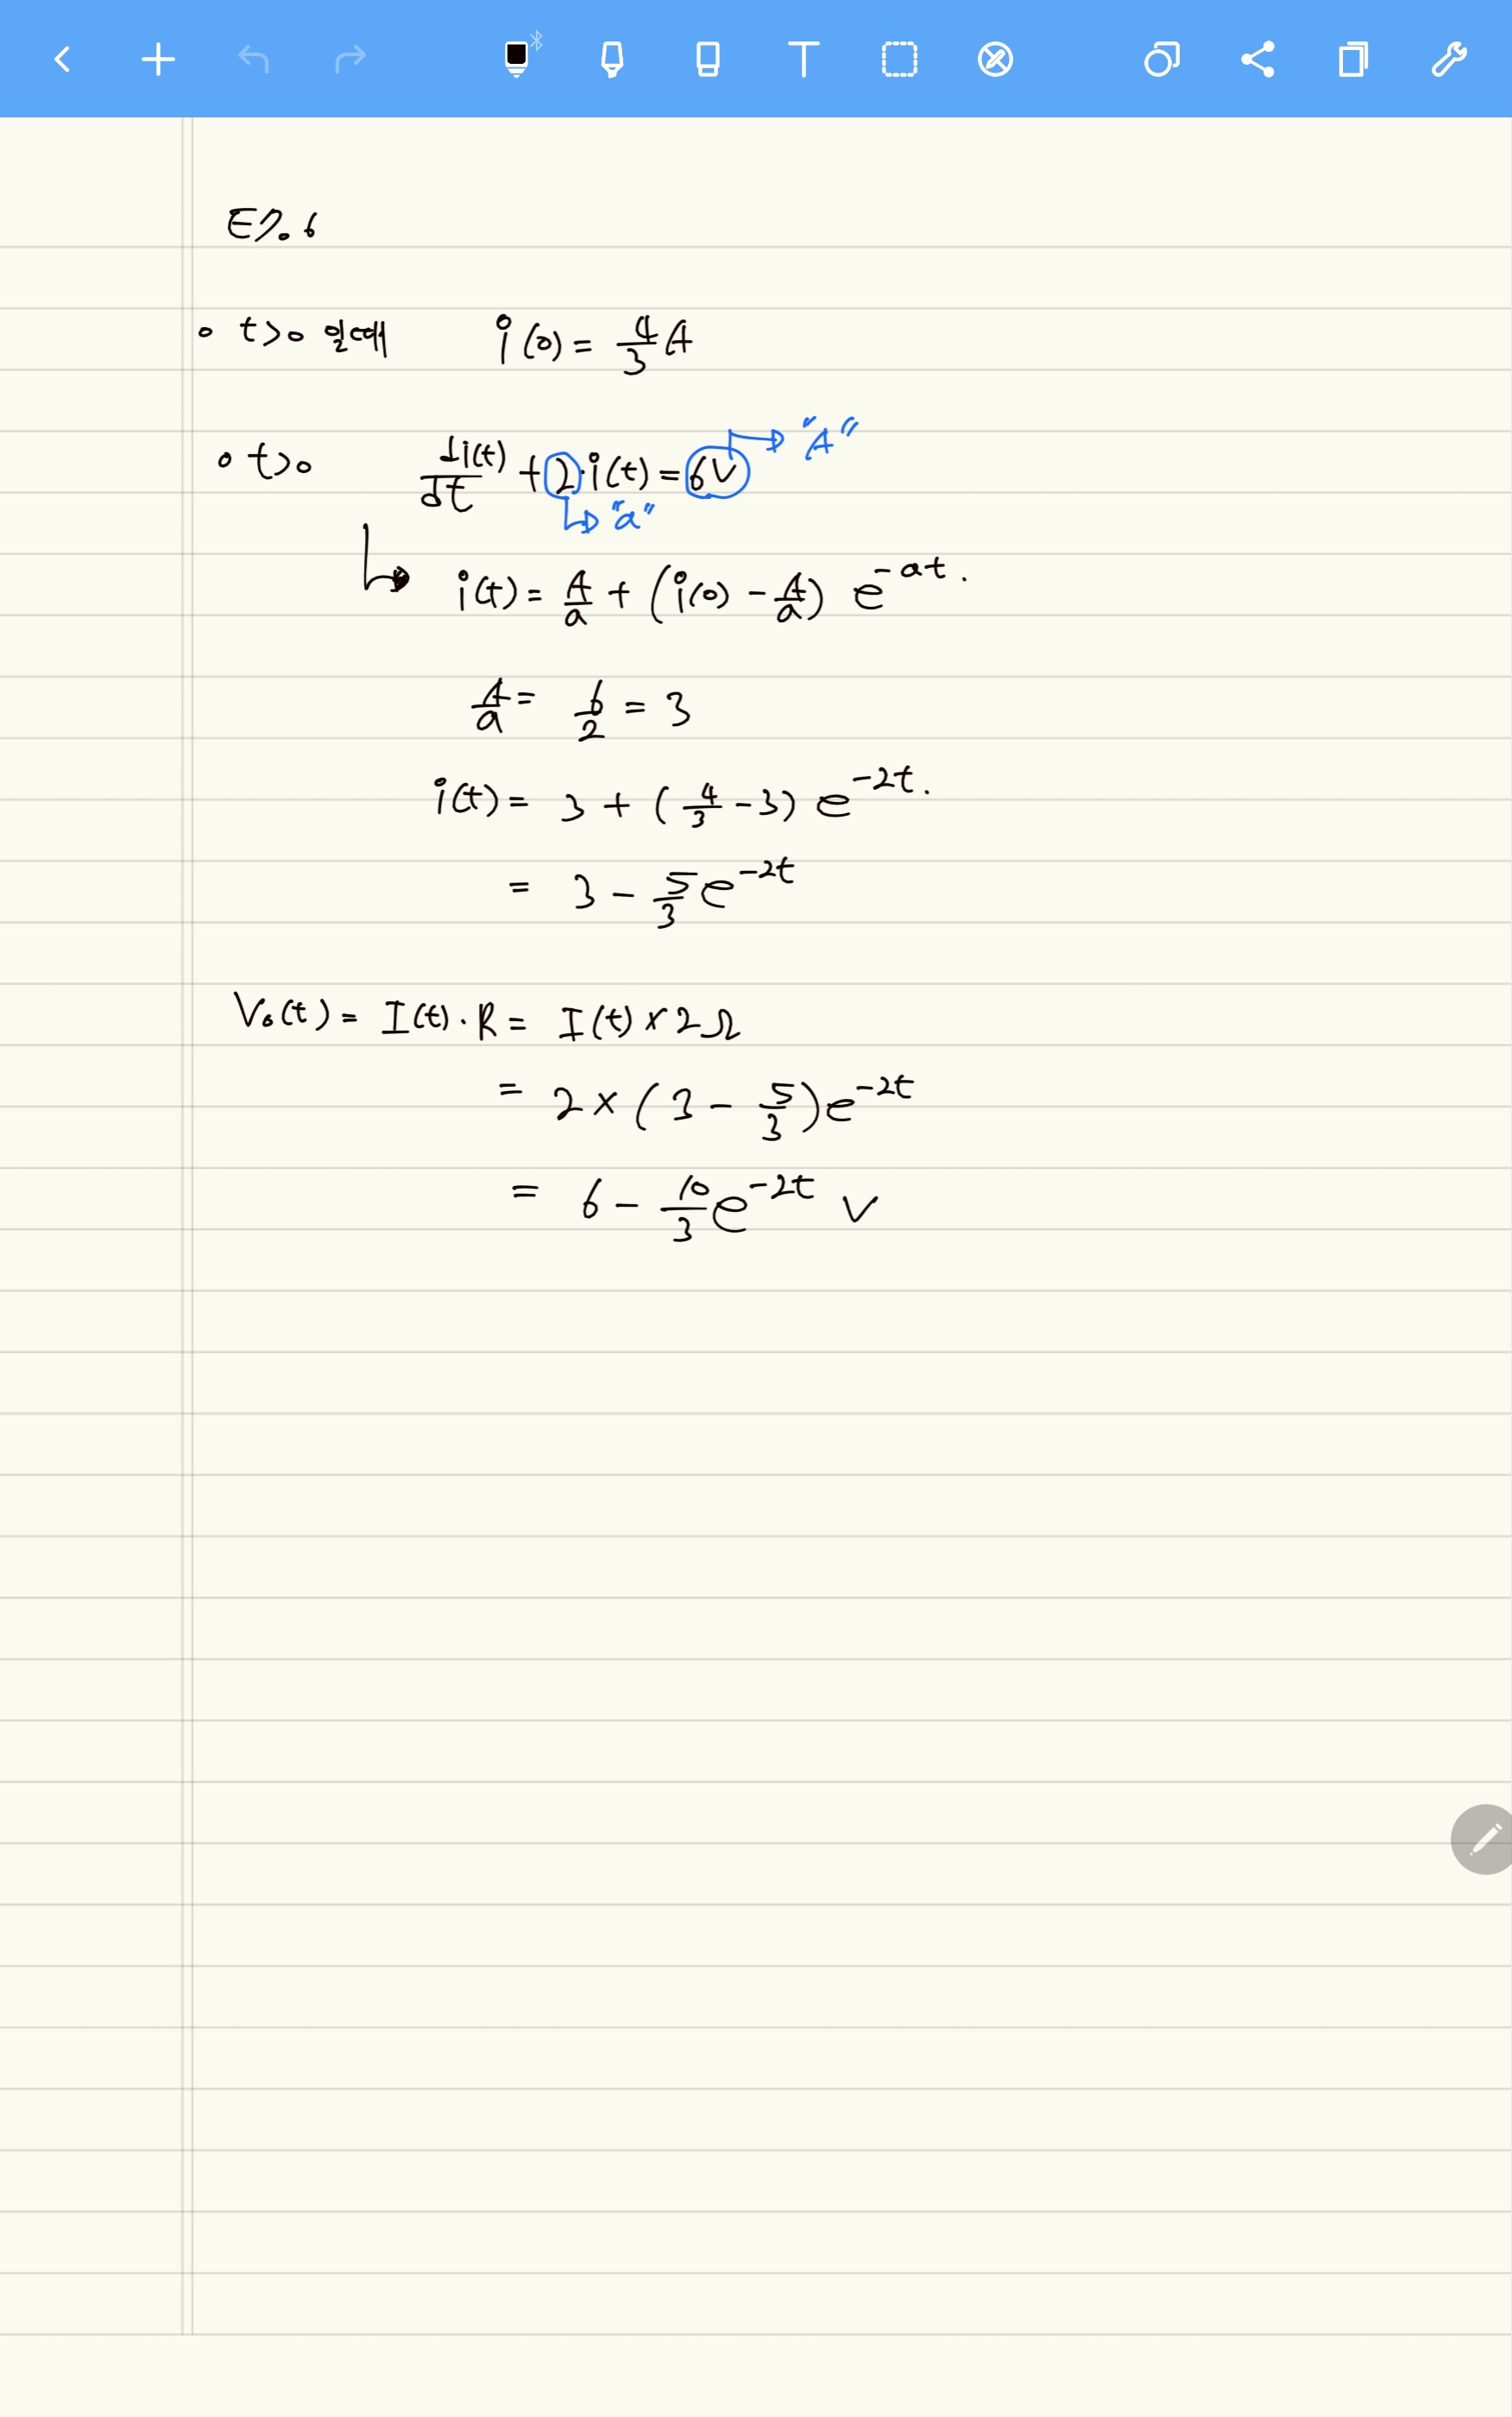 E7.6
∘ t>0 일때 i(0) = 4/3 A
∘ t>0 di(t)/dt + 2·i(t) = 6V → "A"
↳ "a"
↳ i(t) = A/a + (i(0) - A/a) e^-at.
A/a = 6/2 = 3
i(t) = 3 + (4/3 - 3) e^-2t.
= 3 - 5/3 e^-2t
V₀(t) = I(t)·R = I(t) × 2Ω
= 2 × (3 - 5/3) e^-2t
= 6 - 10/3 e^-2t V